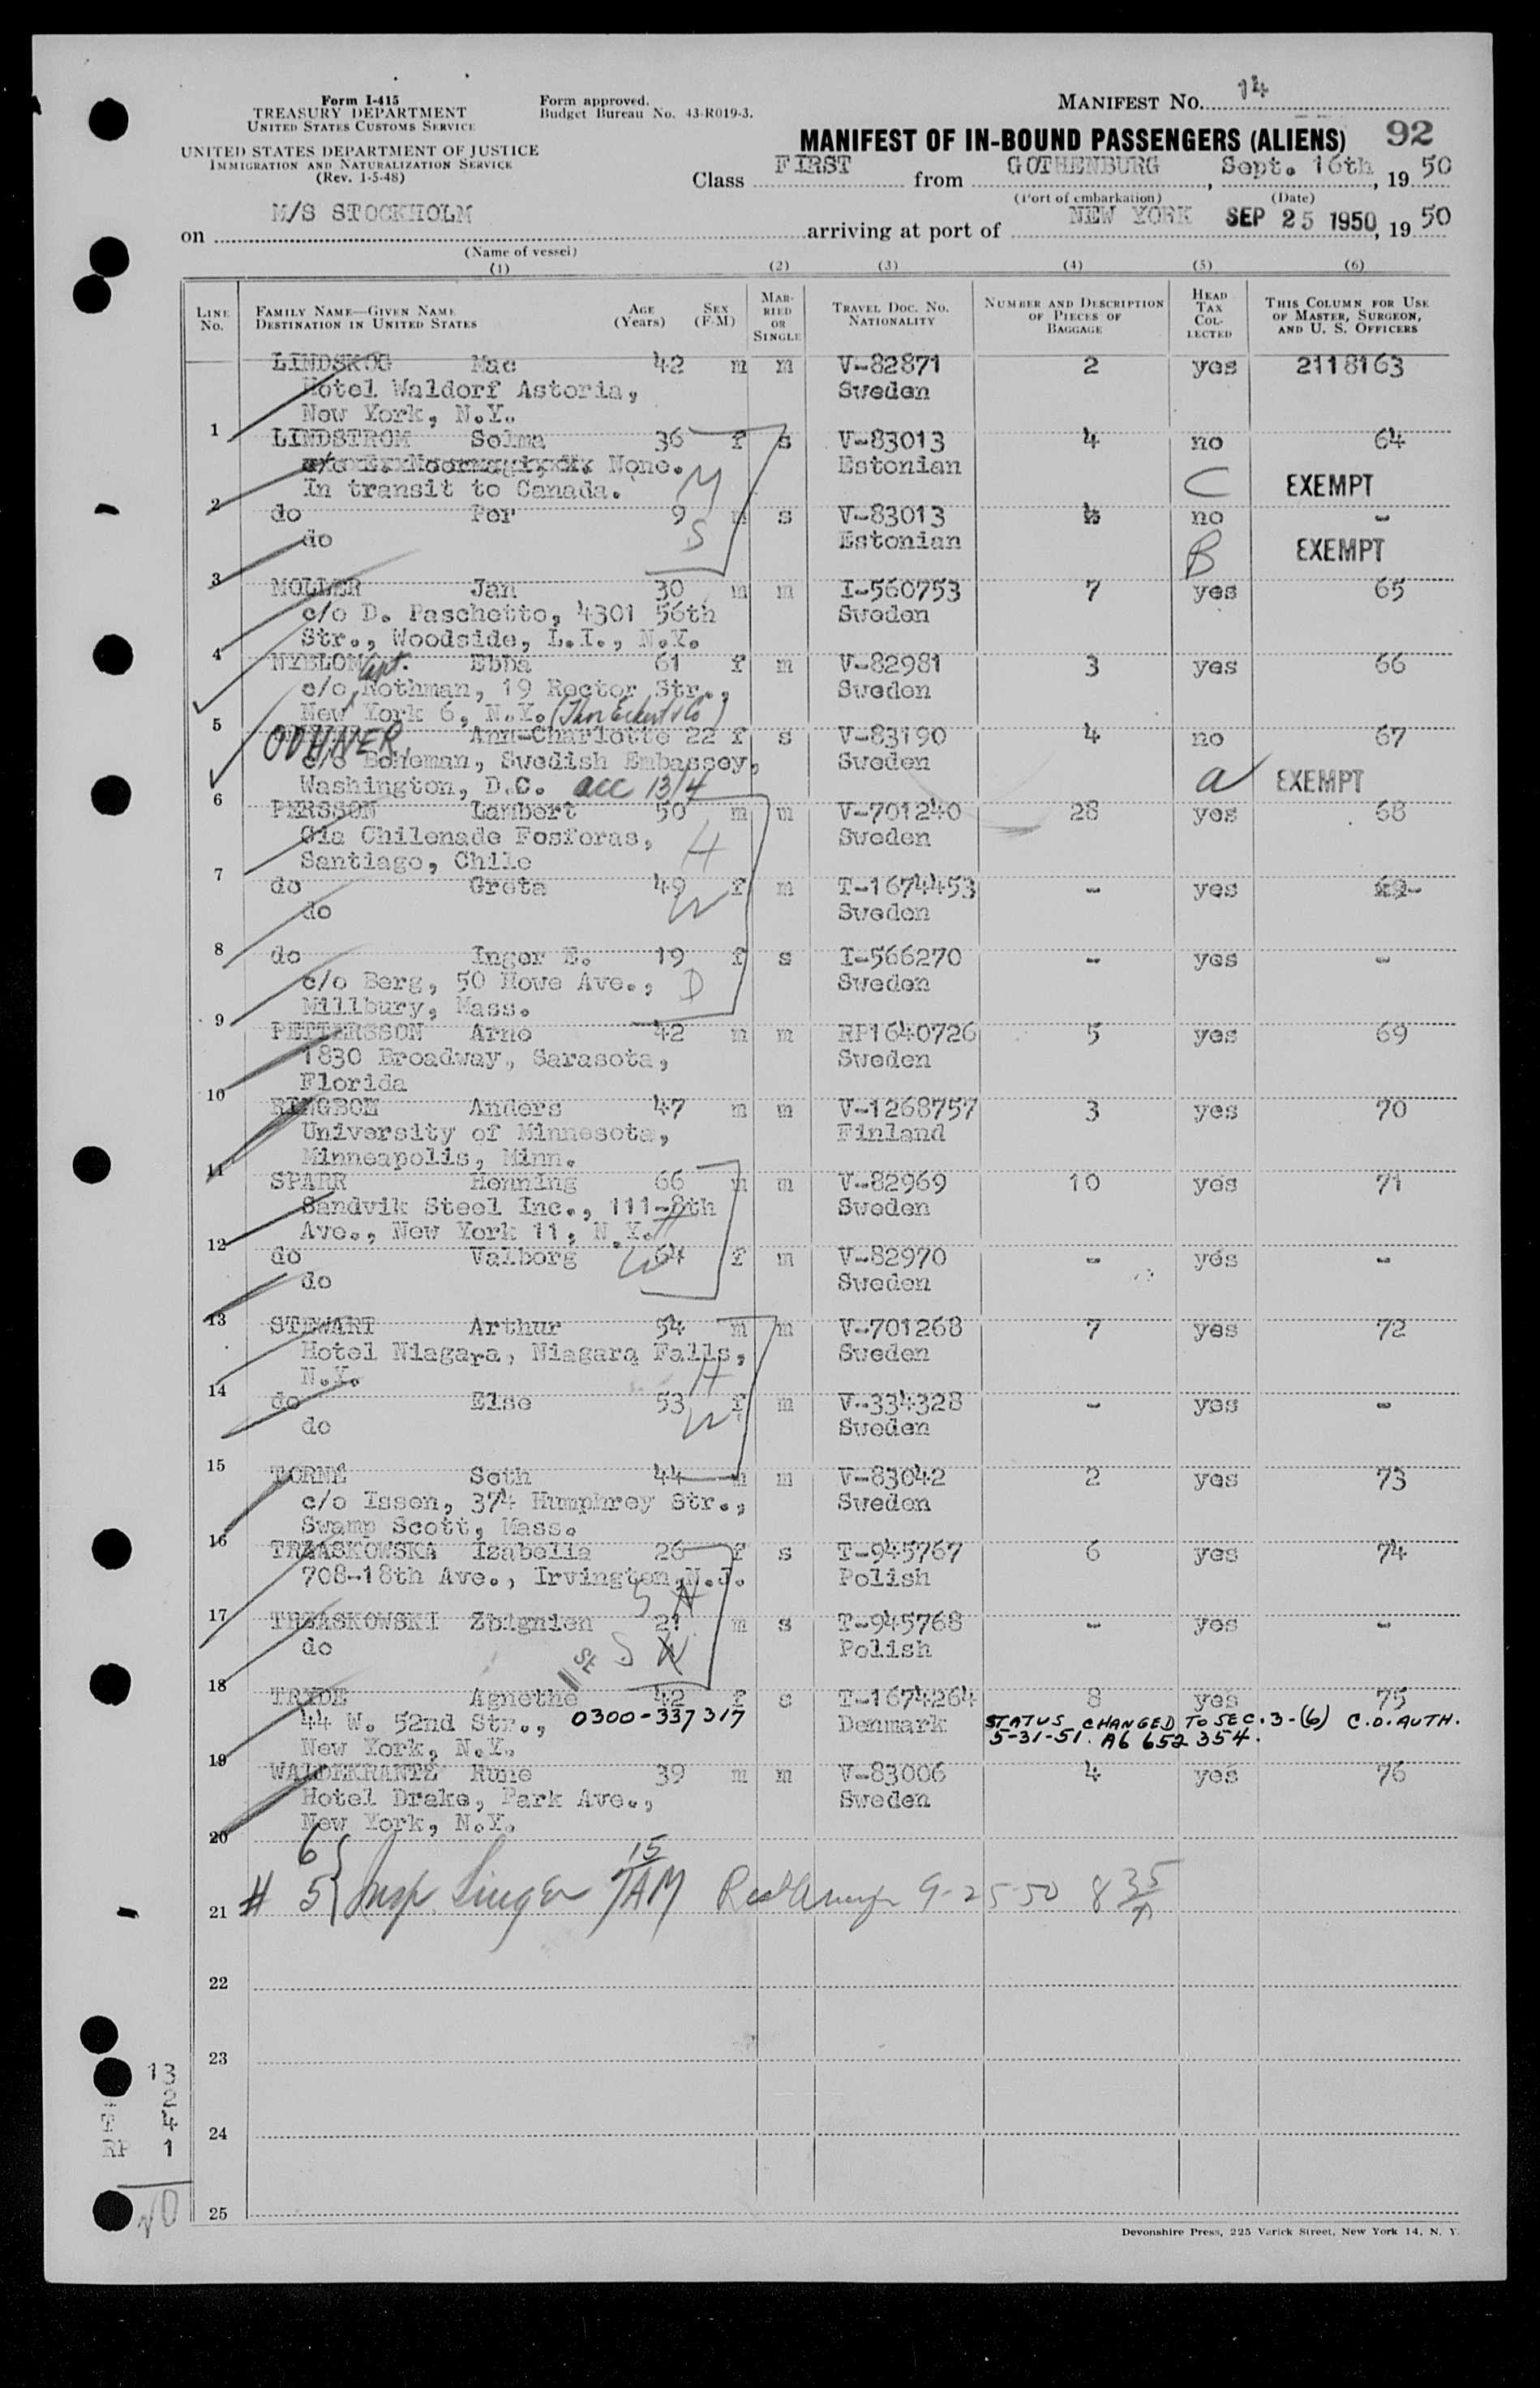 Form I-415
TREASURY DEPARTMENT
UNITED STATES CUSTOMS SERVICE
UNITED STATES DEPARTMENT OF JUSTICE
IMMIGRATION AND NATURALIZATION SERVICE
(Rev. 1-5-48)
Form approved.
Budget Bureau No. 43-R019-3.
MANIFEST NO. 14
MANIFEST OF IN-BOUND PASSENGERS (ALIENS) 92
Class FIRST from GOTHENBURG, Sept. 16th, 19 50
(Port of embarkation) (Date)
on M/S STOCKHOLM arriving at port of NEW YORK SEP 25 1950, 19 50
(Name of vessel)
(1) (2) (3) (4) (5) (6)
LINE No. FAMILY NAME—GIVEN NAME DESTINATION IN UNITED STATES AGE (Years) SEX (F-M) MARRIED OR SINGLE TRAVEL DOC. NO. NATIONALITY NUMBER AND DESCRIPTION OF PIECES OF BAGGAGE HEAD TAX COLLECTED THIS COLUMN FOR USE OF MASTER, SURGEON, AND U. S. OFFICERS
LINDSKOG Mac 42 m m V-82871 2 yes 2118163
Hotel Waldorf Astoria, Sweden
New York, N.Y.
1
LINDSTROM Selma 36 f s V-83013 4 no 64
None. Estonian
In transit to Canada. M C EXEMPT
2
do Per 9 m s V-83013 no -
do S Estonian B EXEMPT
3
MOLLER Jan 30 m m I-560753 7 yes 65
c/o D. Paschetto, 4301 56th Sweden
Str., Woodside, L.I., N.Y.
4
NYBLOM Ebba 61 f m V-82981 3 yes 66
c/o Capt. Rothman, 19 Rector Str., Sweden
New York 6, N.Y. (Thor Eckert & Co)
5
ODHNER, Ann-Charlotte 22 f s V-83190 4 no 67
c/o Boheman, Swedish Embassey, Sweden
Washington, D.C. acc 13/4 a EXEMPT
6
PERSSON Lambert 50 m m V-701240 28 yes 68
Cia Chilenade Fosforas, H Sweden
Santiago, Chile
7
do Greta 49 f m T-1674453 - yes 69-
do W Sweden
8
do Inger E. 19 f s I-566270 - yes -
c/o Berg, 50 Howe Ave., D Sweden
Millbury, Mass.
9
PETTERSSON Arne 42 m m RP1640726 5 yes 69
1830 Broadway, Sarasota, Sweden
Florida
10
RINGBOM Anders 47 m m V-1268757 3 yes 70
University of Minnesota, Finland
Minneapolis, Minn.
11
SPARR Henning 66 m m V-82969 10 yes 71
Sandvik Steel Inc., 111-8th Sweden
Ave., New York 11, N.Y. H
12
do Valborg 64 f m V-82970 - yes -
do W Sweden
13
STEWART Arthur 54 m m V-701268 7 yes 72
Hotel Niagara, Niagara Falls, Sweden
N.Y. H
14
do Else 53 f m V-334328 - yes -
do W Sweden
15
TORNÉ Seth 44 m m V-83042 2 yes 73
c/o Issen, 374 Humphrey Str., Sweden
Swamp Scott, Mass.
16
TRZASKOWSKA Izabella 26 f s T-945767 6 yes 74
708-18th Ave., Irvington, N.J. Polish
17
TRZASKOWSKI Zbignien 21 m s T-945768 - yes -
do S Polish
18
TRYDE Agnethe 42 f s T-1674264 8 yes 75
44 W. 52nd Str., 0300-337317 Denmark STATUS CHANGED TO SEC. 3-(6) C.O. AUTH.
New York, N.Y. 5-31-51. A6 652 354.
19
WALDEKRANTZ Rune 39 m m V-83006 4 yes 76
Hotel Drake, Park Ave., Sweden
New York, N.Y.
20
6
# 5 Insp. Singer 7 15 AM 9-25-50 8 35
21
22
23
13
2
24
T 4
RP 1
25
Devonshire Press, 225 Varick Street, New York 14, N. Y.